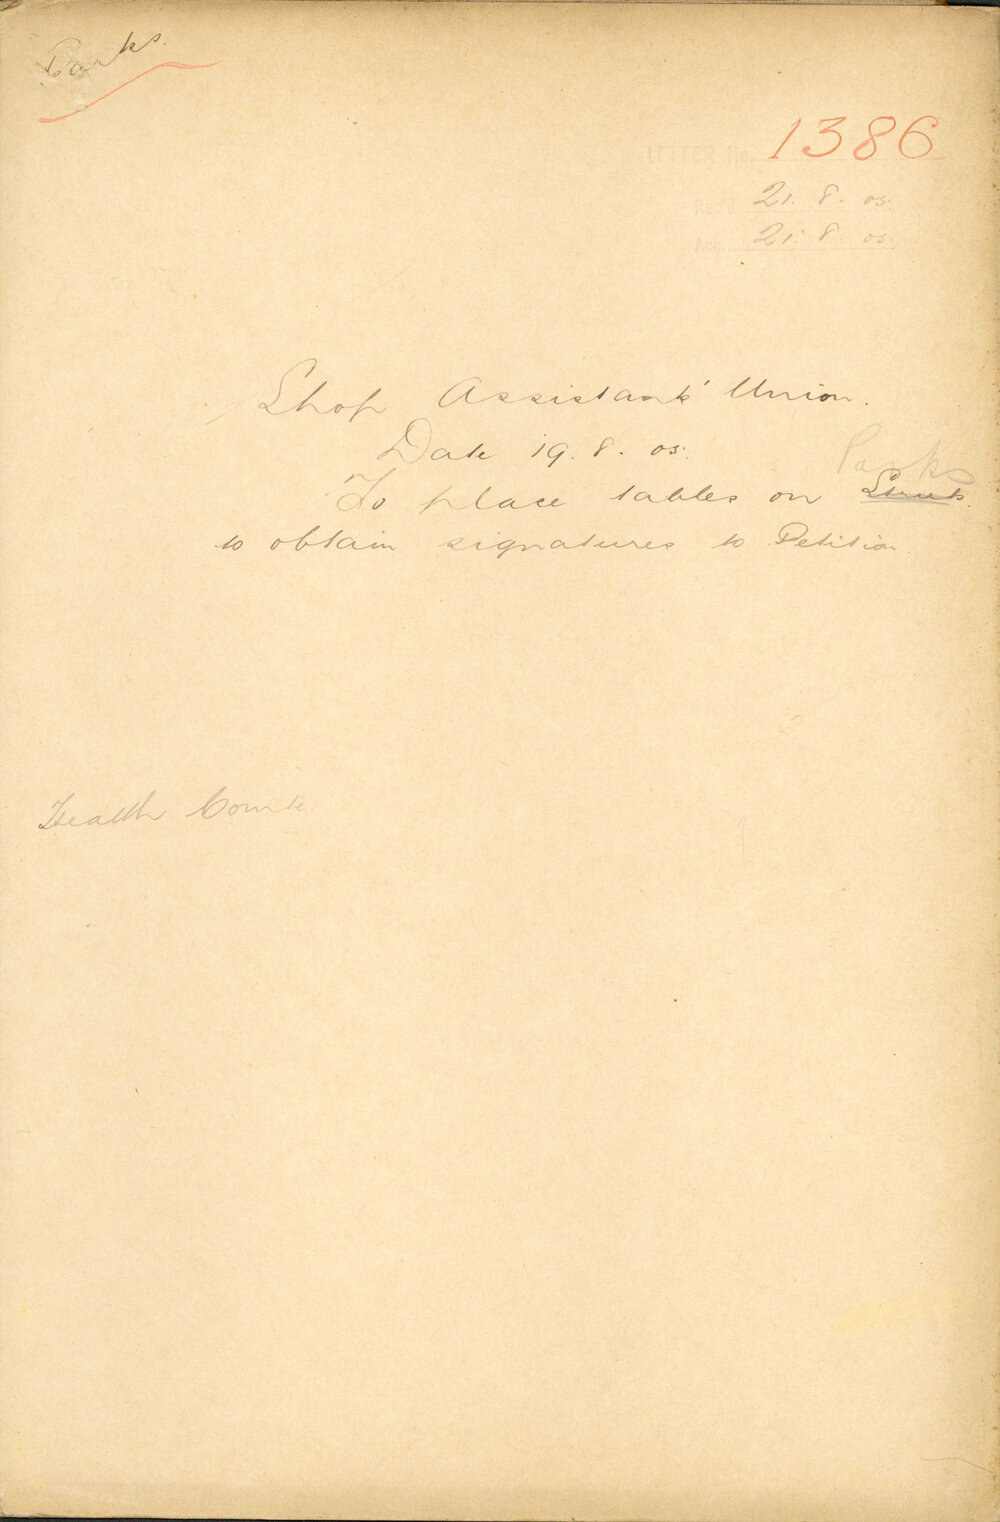 Parks.
LETTER No. 1386
Rec'd 21. 8. 05.
Ack. 21. 8. 05.
Shop Assistants' Union.
Date 19. 8. 05.
Parks
To place tables on Streets.
to obtain signatures to Petition.
Health Comte